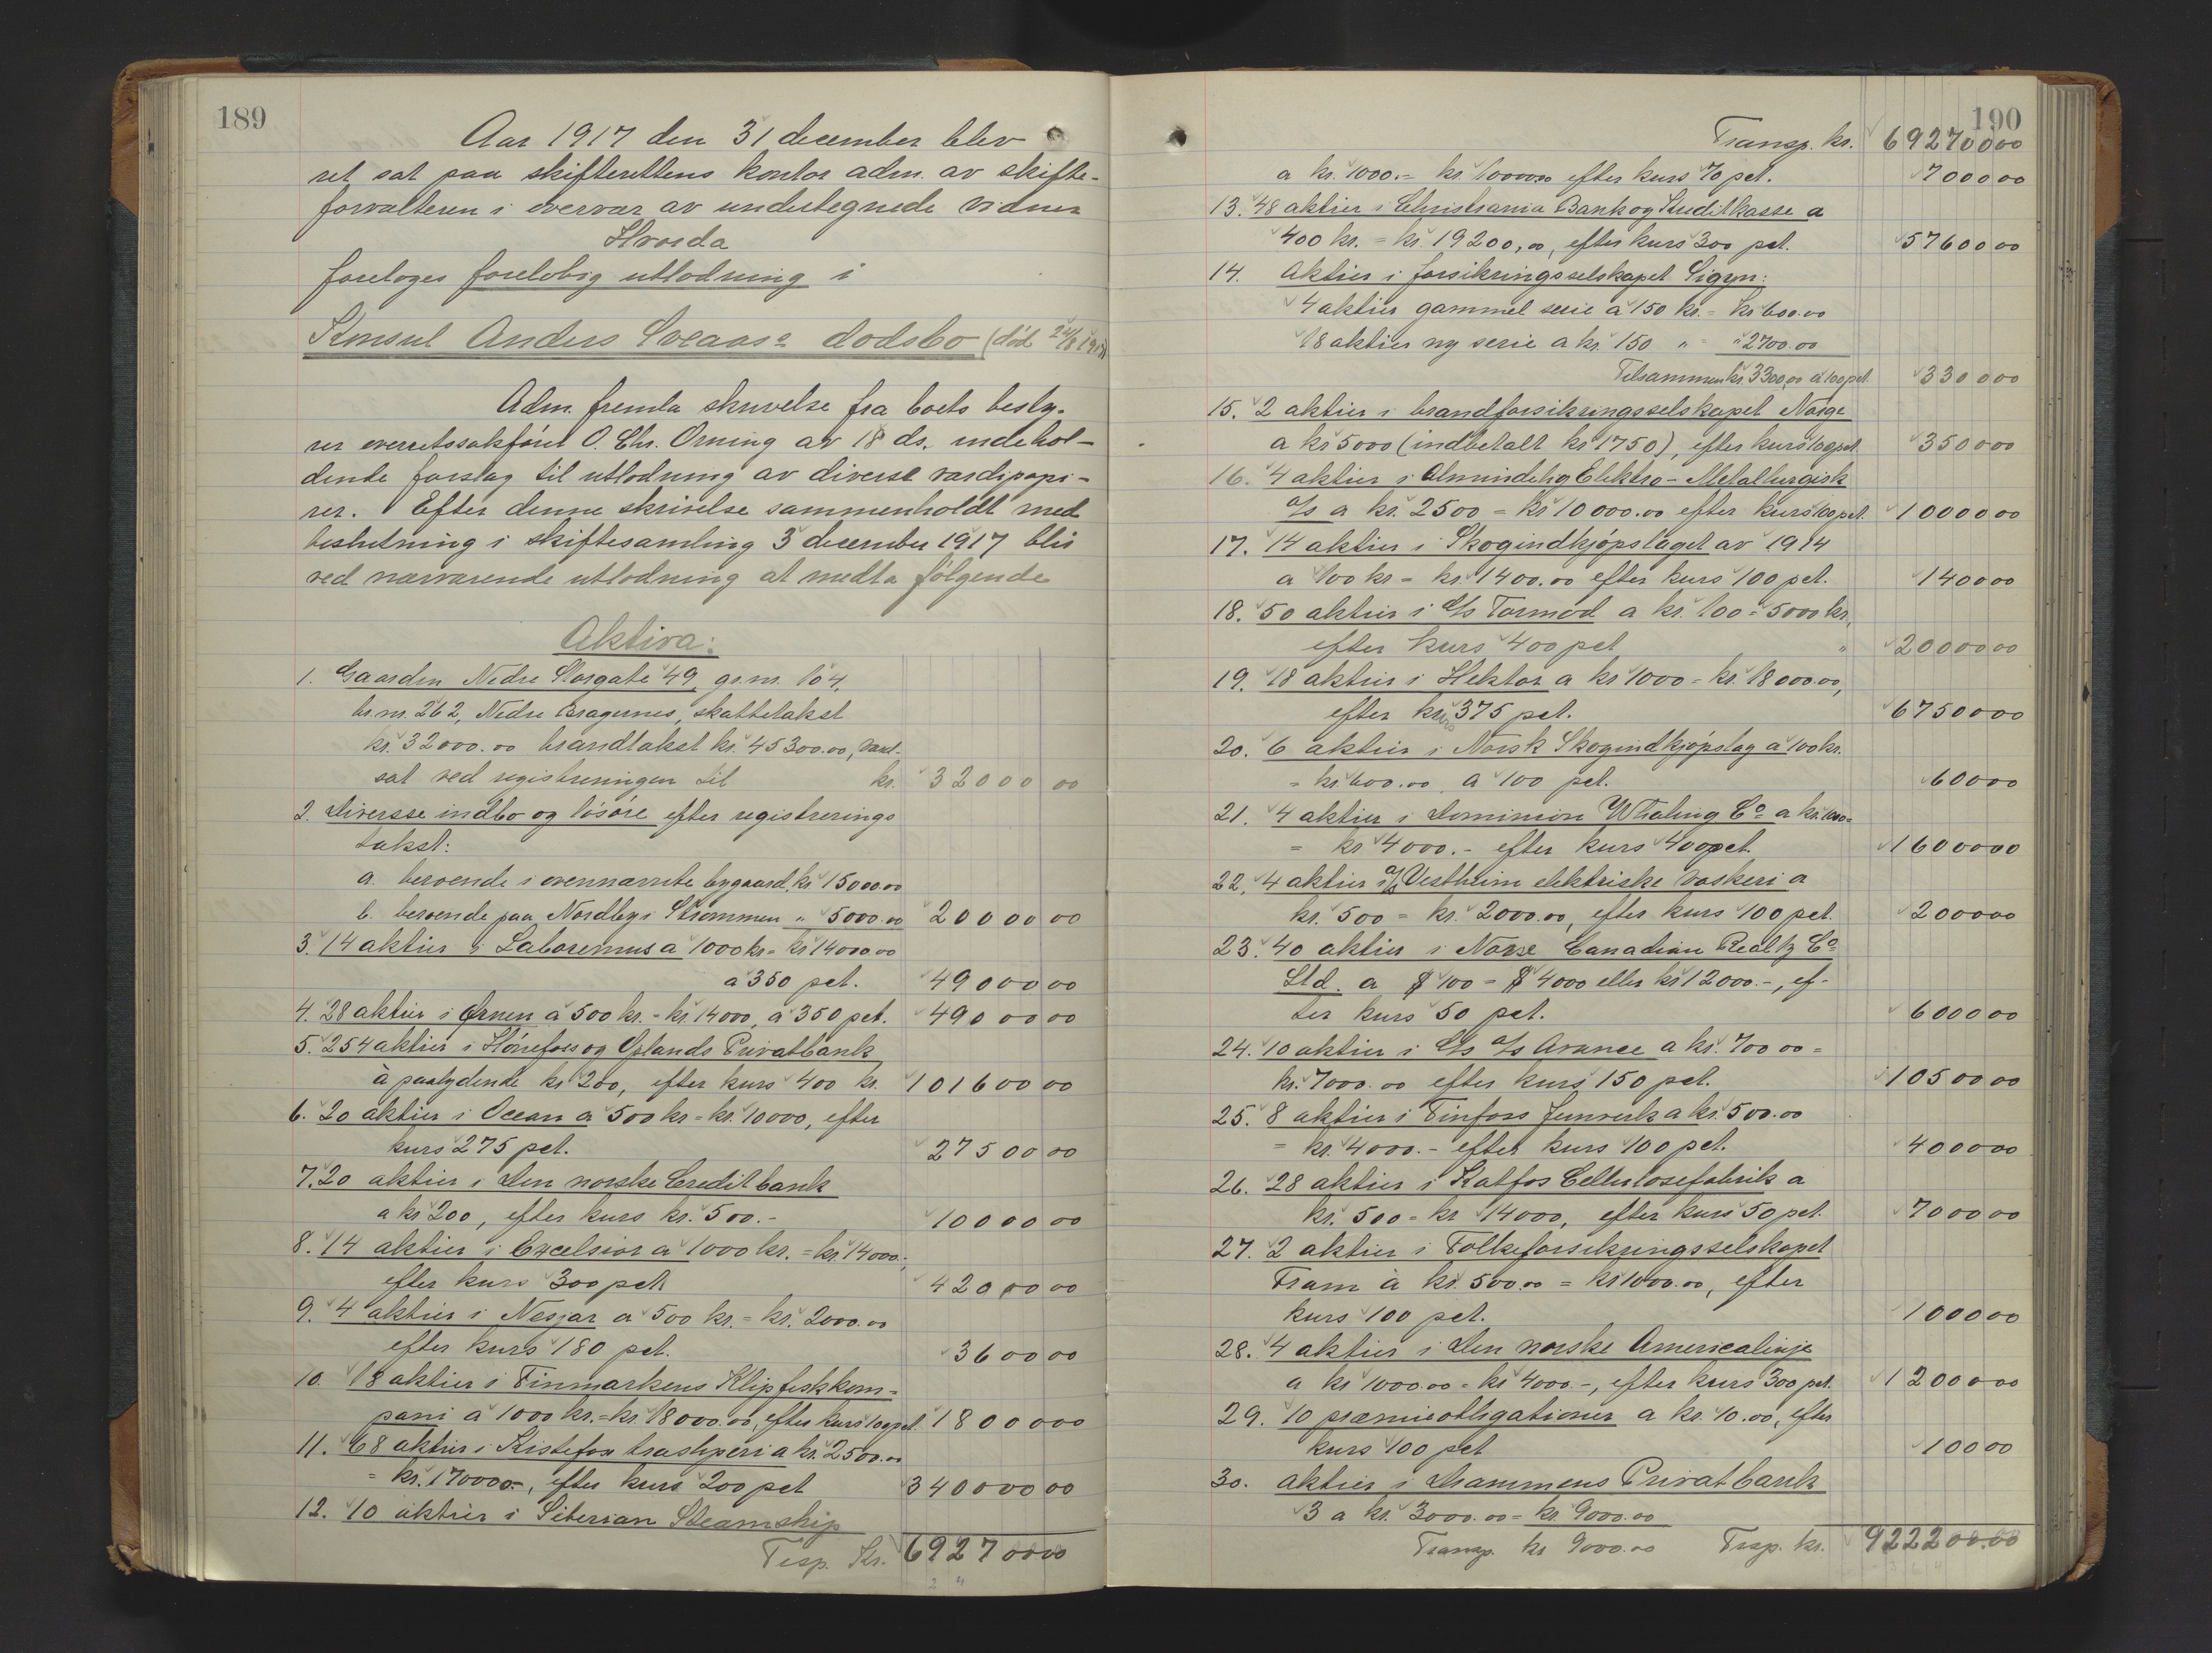 189
Aar 1917 den 31 december blev
ret sat paa skifterettens kontor adm. av skifte-
forvalteren i overvær av undertegnede vidner
Hvorda
foretoges foreløbig utlodning i
Konsul Anders Sveaas's dødsbo (død
Adm. fremla skrivelse fra boets besty-
rer overretssakfører O. Chr. Orning av 18 ds. indehol-
dende forslag til utlodning av diverse værdipapi-
rer. Efter denne skrivelse sammenholdt med
beslutning i skiftesamling 3 december 1917 blir
ved nærværende utlodning at medta følgende
Aktiva:
1. Gaarden Nedre Storgate 49, gr.nr. 104,
br.nr. 262, Nedre Bragernes, skattetakst
kr. 32000.00 brandtakst kr. 45300.00, værd-
sat ved registreringen til kr. 32000 00
2. Diversse indbo og løsøre efter registrerings
takst:
a. beroende i ovennævnte bygaard, kr. 15000.00
b. beroende paa Nordby i Strømmen " 5000.00 20000 00
3. 14 aktier i Laboremus a 1000 kr. = kr. 14000.00
a 350 pct. 49000 00
4. 28 aktier i Ørnen a 500 kr. = kr. 14000, a 350 pct. 49000 00
5. 254 aktier i Hønefos og Oplands Privatbank
à paalydende kr. 200, efter kurs 400 kr. 101600 00
6. 20 aktier i Ocean a 500 kr. = kr. 10000, efter
kurs 275 pct. 27500 00
7. 20 aktier i Den norske Creditbank
a kr. 200, efter kurs kr. 500.- 10000 00
8. 14 aktier i Excelsior a 1000 kr. = kr. 14000.-,
efter kurs 300 pct. 42000 00
9. 4 aktier i Nesjar a 500 kr. = kr. 2000.00
efter kurs 180 pct. 3600 00
10. 18 aktier i Finmarkens Klipfiskkom-
pani a 1000 kr. = kr. 18000.00, efter kurs 100 pct. 18000 00
11. 68 aktier i Kistefos træsliperi a kr. 2500.00
= kr. 170000.-, efter kurs 200 pct 340000 00
12. 10 aktier i Siberian Steamship
Trsp. Kr. 692700 00
190
Transp. kr. 692700 00
a kr. 1000.- = kr. 10000.00 efter kurs 70 pct. 7000 00
13. 48 aktier i Christiania Bank og Kreditkasse a
400 kr. = kr. 19200,00, efter kurs 300 pct. 57600 00
14. Aktier i forsikringsselskapet Sigyn:
4 aktier gammel serie a 150 kr. = kr 600.00
18 aktier ny serie a kr. 150 " = " 2700.00
Tilsammen kr. 3300,00 a 100 pct. 3300 00
15. 2 aktier i brandforsikringsselskapet Norge
a kr 5000 (indbetalt kr 1750), efter kurs 100 pct. 3500 00
16. 4 aktier i Almindelig Elektro-Metallurgisk
A/S a kr. 2500 = kr 10000.00 efter kurs 100 pct. 10000 00
17. 14 aktier i Skogindkjøpslaget av 1914
a 100 kr = kr. 1400.00 efter kurs 100 pct. 1400 00
18. 50 aktier i D/S Tormod a kr. 100 = 5000 kr.,
efter kurs 400 pct " 20000 00
19. 18 aktier i Hektor a kr 1000 = kr. 18000.00,
efter kurs 375 pct. 67500 00
20. 6 aktier i Norsk Skogindkjøpslag a 100 kr.
= kr. 600.00, a 100 pct. 600 00
21. 4 aktier i Dominion Whaling Co a kr. 1000 =
= kr 4000.- efter kurs 400 pct. 16000 00
22. 4 aktier i A/S Vestheim elektriske vaskeri a
kr. 500 = kr. 2000.00, efter kurs 100 pct. 2000 00
23. 40 aktier i Norse Canadian Realty Co
Ltd. a $ 100 = $ 4000 eller kr 12000.-, ef-
ter kurs 50 pct. 6000 00
24. 10 aktier i D/S A/S Avance a kr. 700 00 =
kr. 7000.00 efter kurs 150 pct. 10500 00
25. 8 aktier i Tinfos Jernverk a kr. 500.00
= kr. 4000.- efter kurs 100 pct. 4000 00
26. 28 aktier i Katfos Cellulosefabrik a
kr. 500 = kr 14000, efter kurs 50 pct. 7000 00
27. 2 aktier i Folkeforsikringsselskapet
Fram à kr. 500.00 = kr 1000.00, efter
kurs 100 pct. 1000 00
28. 4 aktier i Den norske Americalinje
a kr 1000.00 = kr 4000.-, efter kurs 300 pct. 12000 00
29. 10 præmieobligationer a kr. 10.00, efter
kurs 100 pct 100 00
30. aktier i Drammens Privatbank
3 a kr. 3000.00 = kr. 9000.00
Transp. kr 9000.00 Trsp. kr. 922200.00